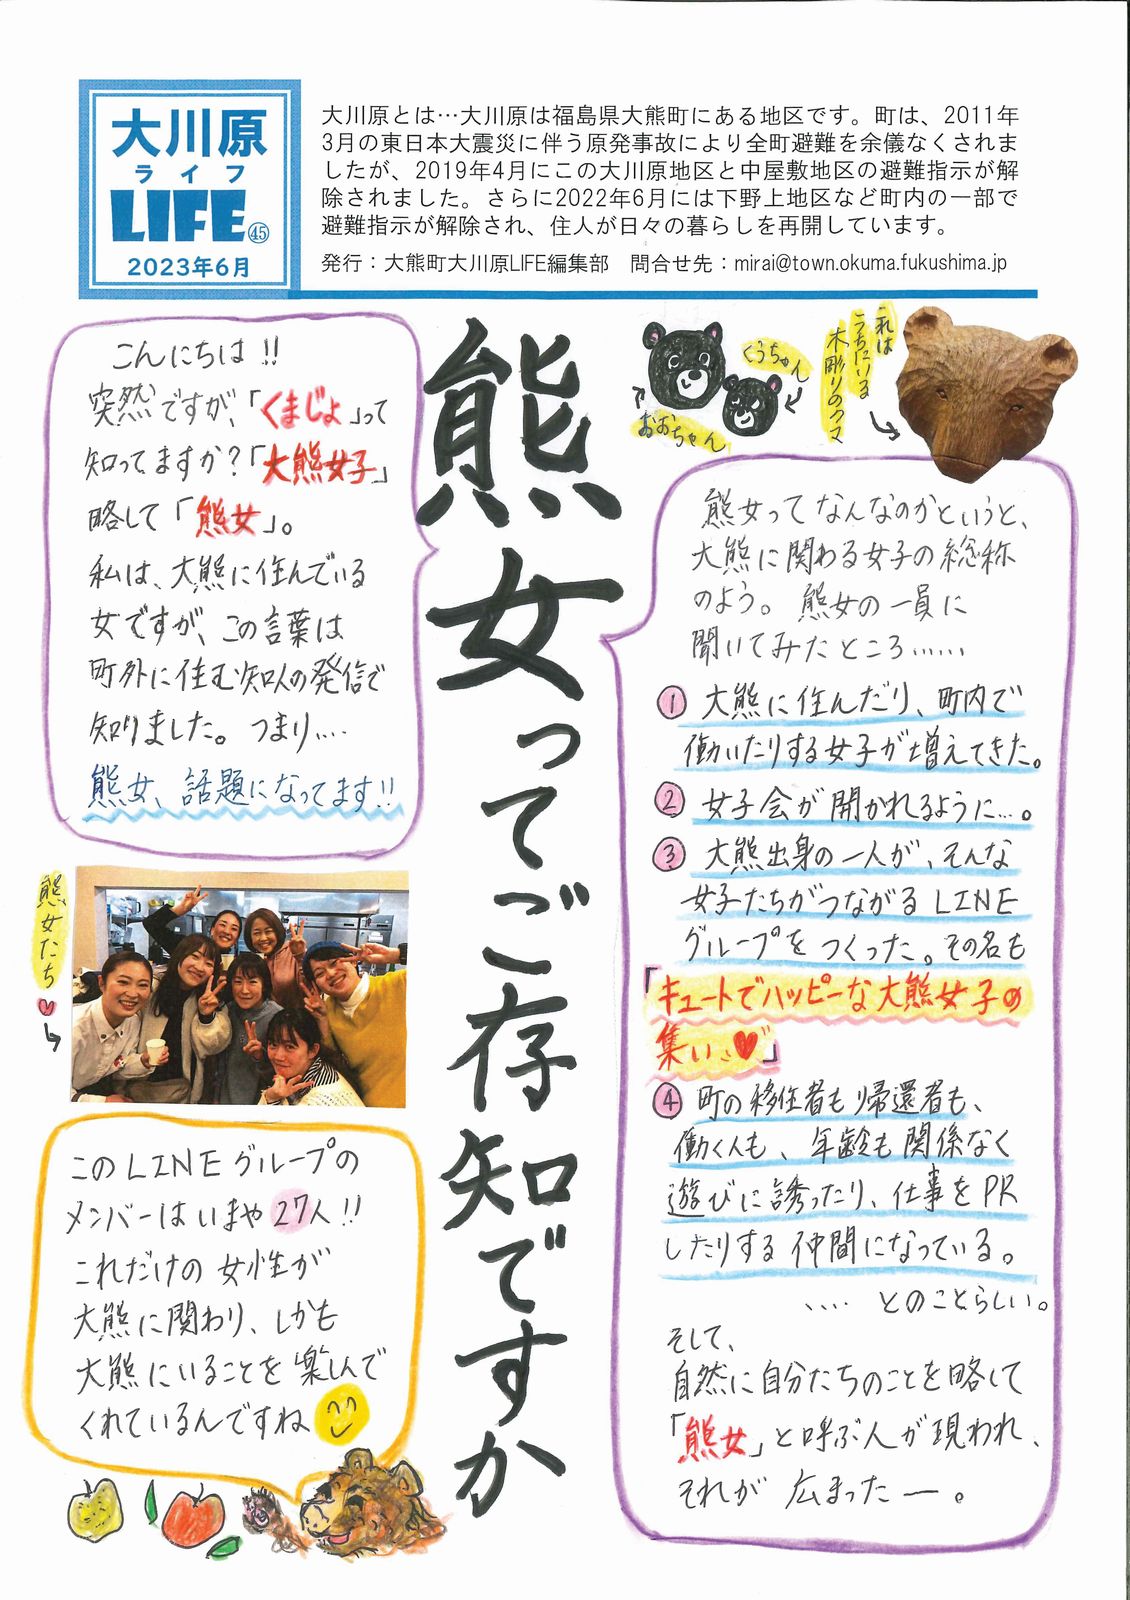 大川原
ライフ
LIFE㊺
2023年6月
大川原とは…大川原は福島県大熊町にある地区です。町は、2011年
3月の東日本大震災に伴う原発事故により全町避難を余儀なくされま
したが、2019年4月にこの大川原地区と中屋敷地区の避難指示が解
除されました。さらに2022年6月には下野上地区など町内の一部で
避難指示が解除され、住人が日々の暮らしを再開しています。
発行：大熊町大川原LIFE編集部　問合せ先：mirai@town.okuma.fukushima.jp
熊女ってご存知ですか
こんにちは!!
突然ですが、「くまじょ」って
知ってますか?「大熊女子」
略して「熊女」。
私は、大熊に住んでいる
女ですが、この言葉は
町外に住む知人の発信で
知りました。つまり….
熊女、話題になってます!!
くうちゃん
おおちゃん
これは
うちにいる
木彫りのクマ
熊女ってなんなのかというと、
大熊に関わる女子の総称
のよう。熊女の一員に
聞いてみたところ……
① 大熊に住んだり、町内で
働いたりする女子が増えてきた。
② 女子会が開かれるように…。
③ 大熊出身の一人が、そんな
女子たちがつながるLINE
グループをつくった。その名も
「キュートでハッピーな大熊女子の
集い♥」
④ 町の移住者も帰還者も、
働く人も、年齢も関係なく
遊びに誘ったり、仕事をPR
したりする仲間になっている。
….とのことらしい。
そして、
自然に自分たちのことを略して
「熊女」と呼ぶ人が現われ、
それが広まったー。
熊女たち♥
このLINEグループの
メンバーはいまや27人!!
これだけの女性が
大熊に関わり、しかも
大熊にいることを楽しんで
くれているんですね